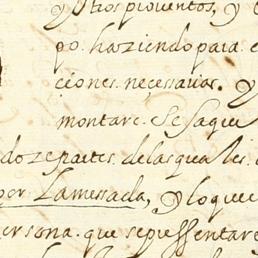 y otros proventos, y
po. haziendo para e
ciones. necessarias. y
montare. Se saque
doze partes. de las quales.
por La mesada, y lo que
ersona. que se pressentare